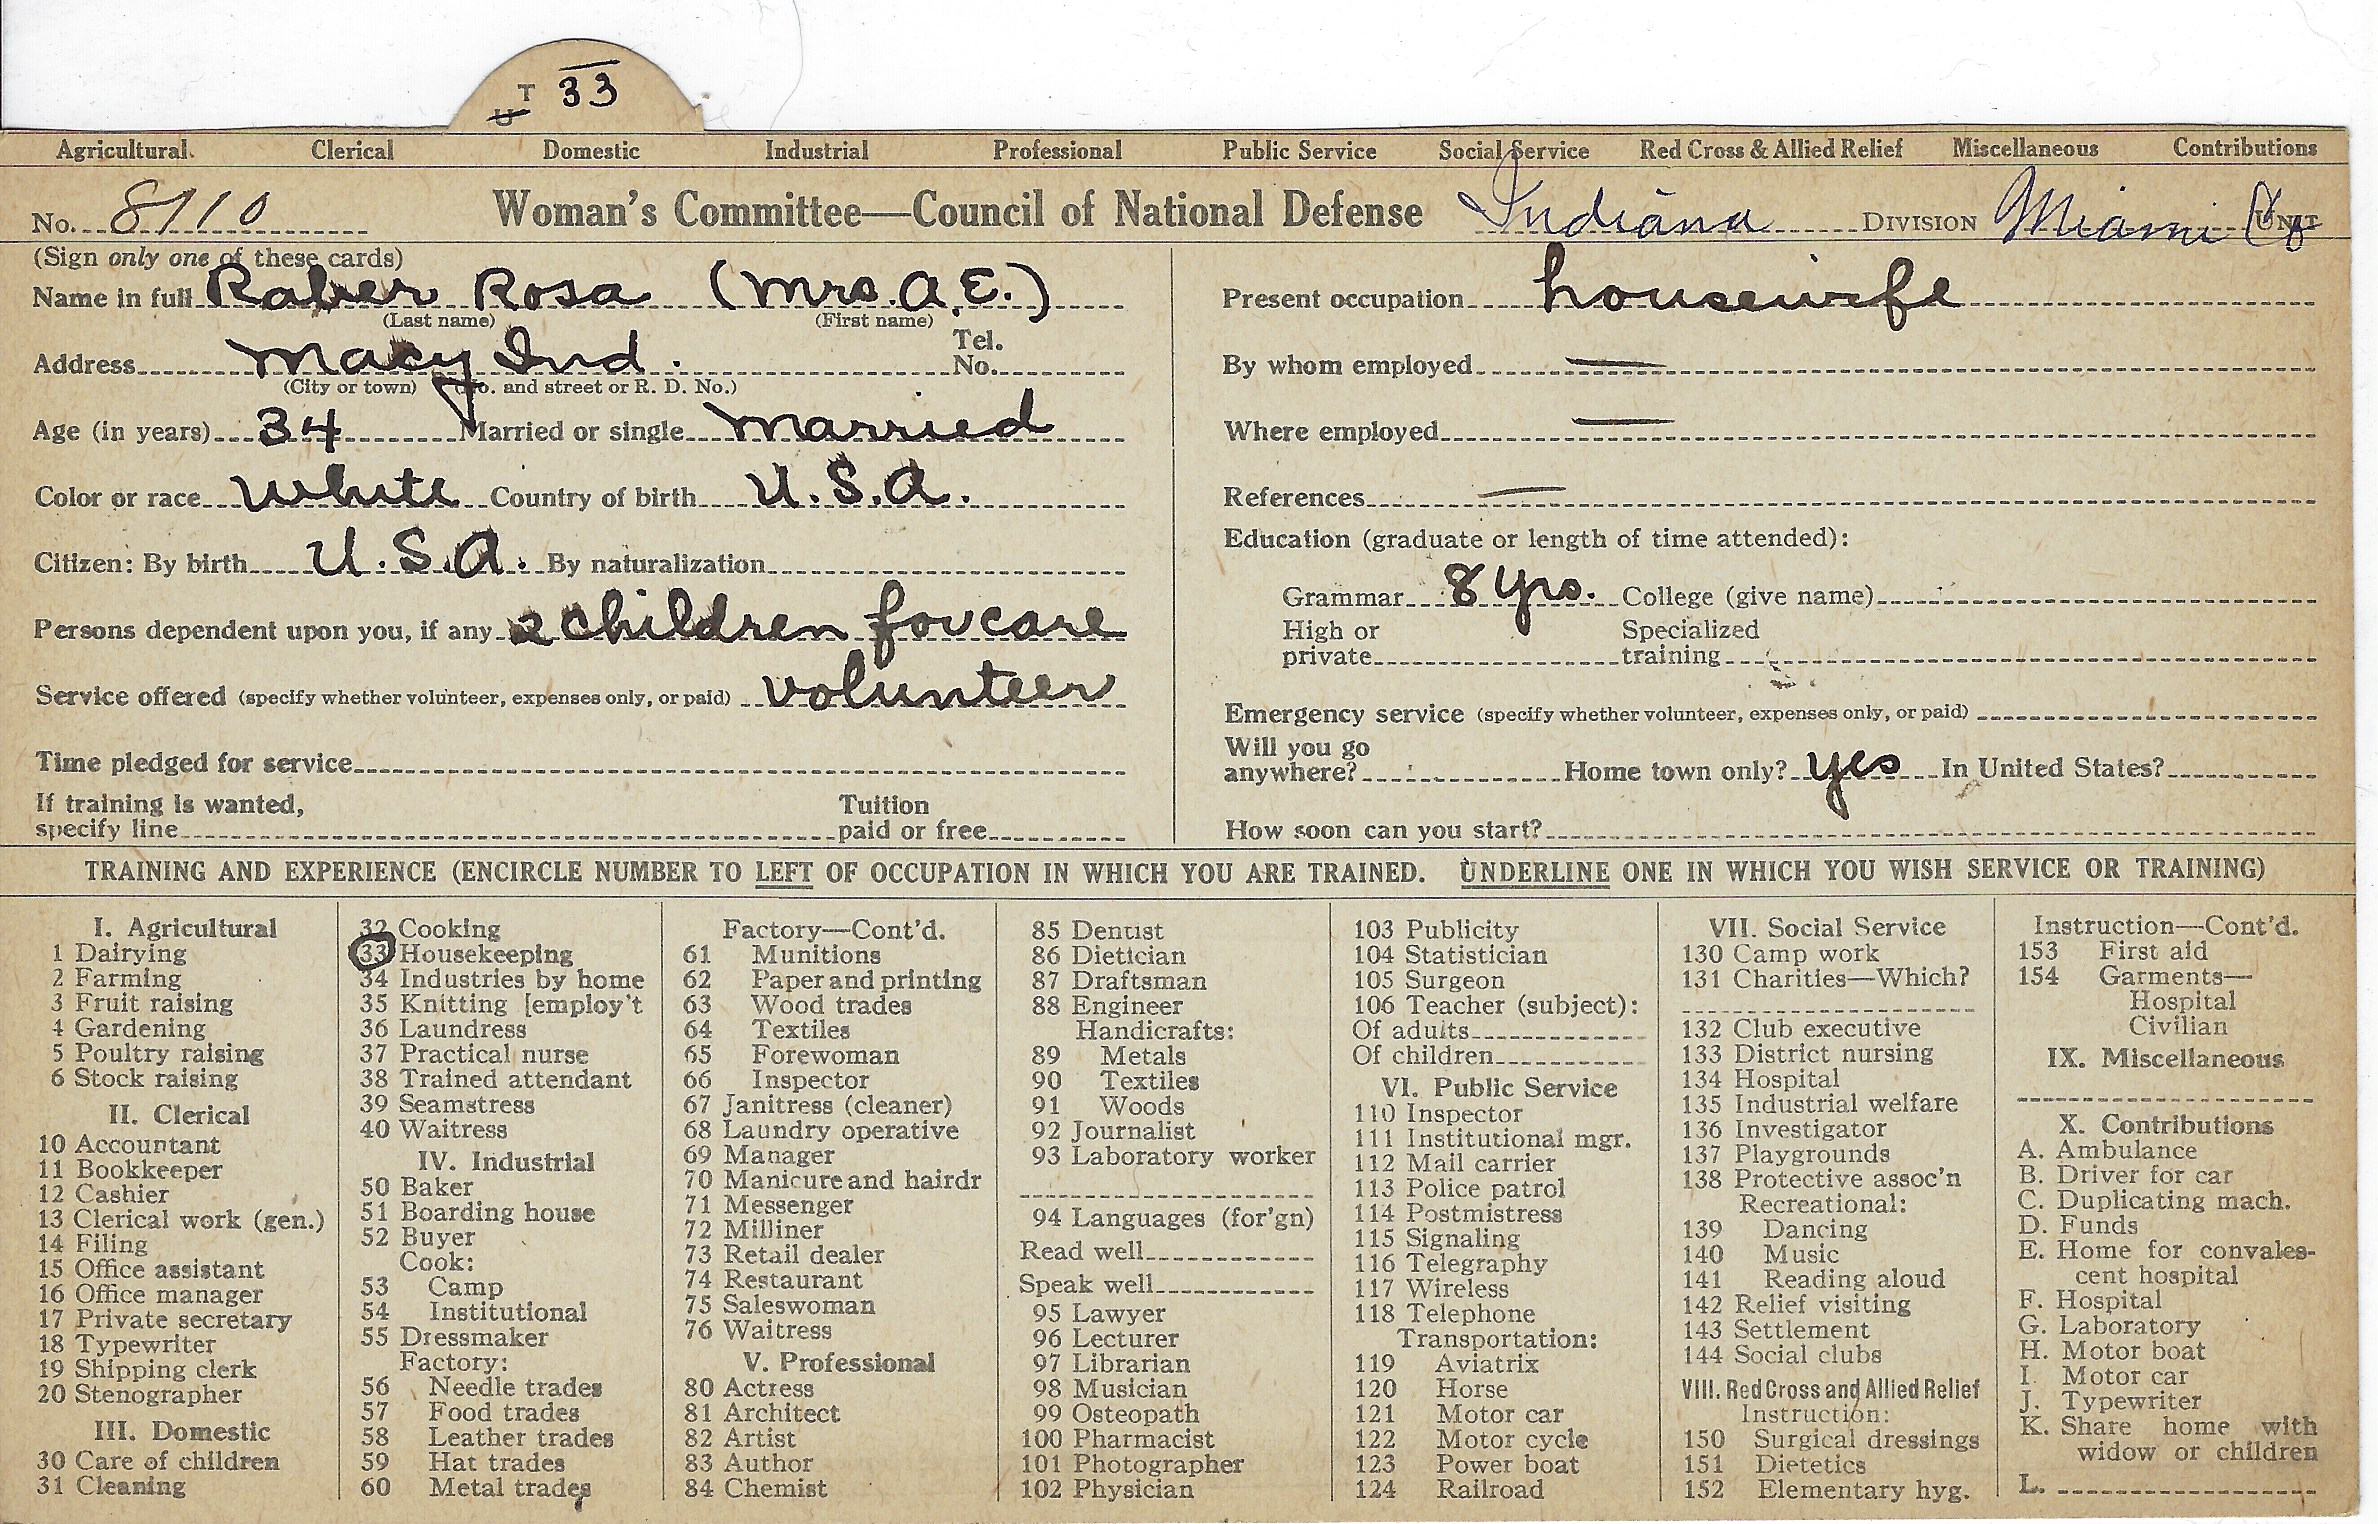 T 33
U
Agricultural Clerical Domestic Industrial Professional Public Service Social Service Red Cross & Allied Relief Miscellaneous Contributions
No. 8110 Woman's Committee—Council of National Defense Indiana DIVISION Miami Co UNIT
(Sign only one of these cards)
Name in full Raber Rosa (Mrs. A. E.)
(Last name) (First name)
Address Macy Ind. Tel. No.
(City or town) (No. and street or R. D. No.)
Age (in years) 34 Married or single married
Color or race White Country of birth U.S.A.
Citizen: By birth U.S.A. By naturalization
Persons dependent upon you, if any 2 children for care
Service offered (specify whether volunteer, expenses only, or paid) volunteer
Time pledged for service
If training is wanted, specify line Tuition paid or free
Present occupation housewife
By whom employed —
Where employed —
References —
Education (graduate or length of time attended):
Grammar 8 yrs. College (give name)
High or private Specialized training
Emergency service (specify whether volunteer, expenses only, or paid)
Will you go anywhere? Home town only? yes In United States?
How soon can you start?
TRAINING AND EXPERIENCE (ENCIRCLE NUMBER TO LEFT OF OCCUPATION IN WHICH YOU ARE TRAINED. UNDERLINE ONE IN WHICH YOU WISH SERVICE OR TRAINING)
I. Agricultural
1 Dairying
2 Farming
3 Fruit raising
4 Gardening
5 Poultry raising
6 Stock raising
II. Clerical
10 Accountant
11 Bookkeeper
12 Cashier
13 Clerical work (gen.)
14 Filing
15 Office assistant
16 Office manager
17 Private secretary
18 Typewriter
19 Shipping clerk
20 Stenographer
III. Domestic
30 Care of children
31 Cleaning
32 Cooking
33 Housekeeping
34 Industries by home
35 Knitting [employ't
36 Laundress
37 Practical nurse
38 Trained attendant
39 Seamstress
40 Waitress
IV. Industrial
50 Baker
51 Boarding house
52 Buyer
Cook:
53 Camp
54 Institutional
55 Dressmaker
Factory:
56 Needle trades
57 Food trades
58 Leather trades
59 Hat trades
60 Metal trades
Factory—Cont'd.
61 Munitions
62 Paper and printing
63 Wood trades
64 Textiles
65 Forewoman
66 Inspector
67 Janitress (cleaner)
68 Laundry operative
69 Manager
70 Manicure and hairdr
71 Messenger
72 Milliner
73 Retail dealer
74 Restaurant
75 Saleswoman
76 Waitress
V. Professional
80 Actress
81 Architect
82 Artist
83 Author
84 Chemist
85 Dentist
86 Dietician
87 Draftsman
88 Engineer
Handicrafts:
89 Metals
90 Textiles
91 Woods
92 Journalist
93 Laboratory worker
94 Languages (for'gn)
Read well
Speak well
95 Lawyer
96 Lecturer
97 Librarian
98 Musician
99 Osteopath
100 Pharmacist
101 Photographer
102 Physician
103 Publicity
104 Statistician
105 Surgeon
106 Teacher (subject):
Of adults
Of children
VI. Public Service
110 Inspector
111 Institutional mgr.
112 Mail carrier
113 Police patrol
114 Postmistress
115 Signaling
116 Telegraphy
117 Wireless
118 Telephone
Transportation:
119 Aviatrix
120 Horse
121 Motor car
122 Motor cycle
123 Power boat
124 Railroad
VII. Social Service
130 Camp work
131 Charities—Which?
132 Club executive
133 District nursing
134 Hospital
135 Industrial welfare
136 Investigator
137 Playgrounds
138 Protective assoc'n
Recreational:
139 Dancing
140 Music
141 Reading aloud
142 Relief visiting
143 Settlement
144 Social clubs
VIII. Red Cross and Allied Relief
Instruction:
150 Surgical dressings
151 Dietetics
152 Elementary hyg.
Instruction—Cont'd.
153 First aid
154 Garments—
Hospital
Civilian
IX. Miscellaneous
X. Contributions
A. Ambulance
B. Driver for car
C. Duplicating mach.
D. Funds
E. Home for convales-
cent hospital
F. Hospital
G. Laboratory
H. Motor boat
I. Motor car
J. Typewriter
K. Share home with
widow or children
L.